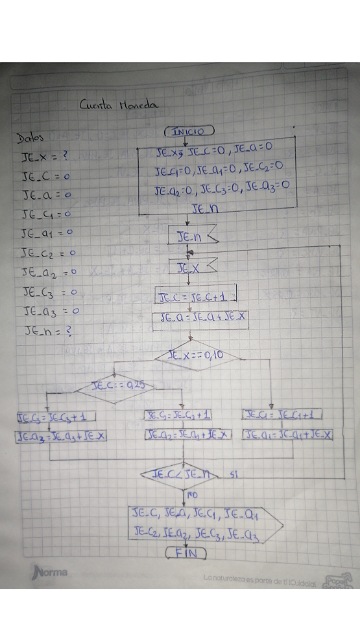 Cuenta Moneda
Datos
JE_x = ?
JE_C = 0
JE_a = 0
JE_C1 = 0
JE_a1 = 0
JE_C2 = 0
JE_a2 = 0
JE_C3 = 0
JE_a3 = 0
JE_n = ?
INICIO
JE_x, JE_C=0, JE_a=0
JE_C1=0, JE_a1=0, JE_C2=0
JE_a2=0, JE_C3=0, JE_a3=0
JE_n
JE_n
JE_X
JE_C = JE_C+1
JE_a = JE_a+JE_X
JE_X==0,10
JE_C==0,25
JE_C3=JE_C3+1
JE_a3=JE_a1+JE_X
JE_a2=JE_a1+JE_X
JE_C1=JE_C1+1
JE_a1=JE_a1+JE_X
JE_C<JE_n
SI
NO
JE_C, JE_a, JE_C1, JE_a1
JE_C2, JE_a2, JE_C3, JE_a3
FIN
Norma